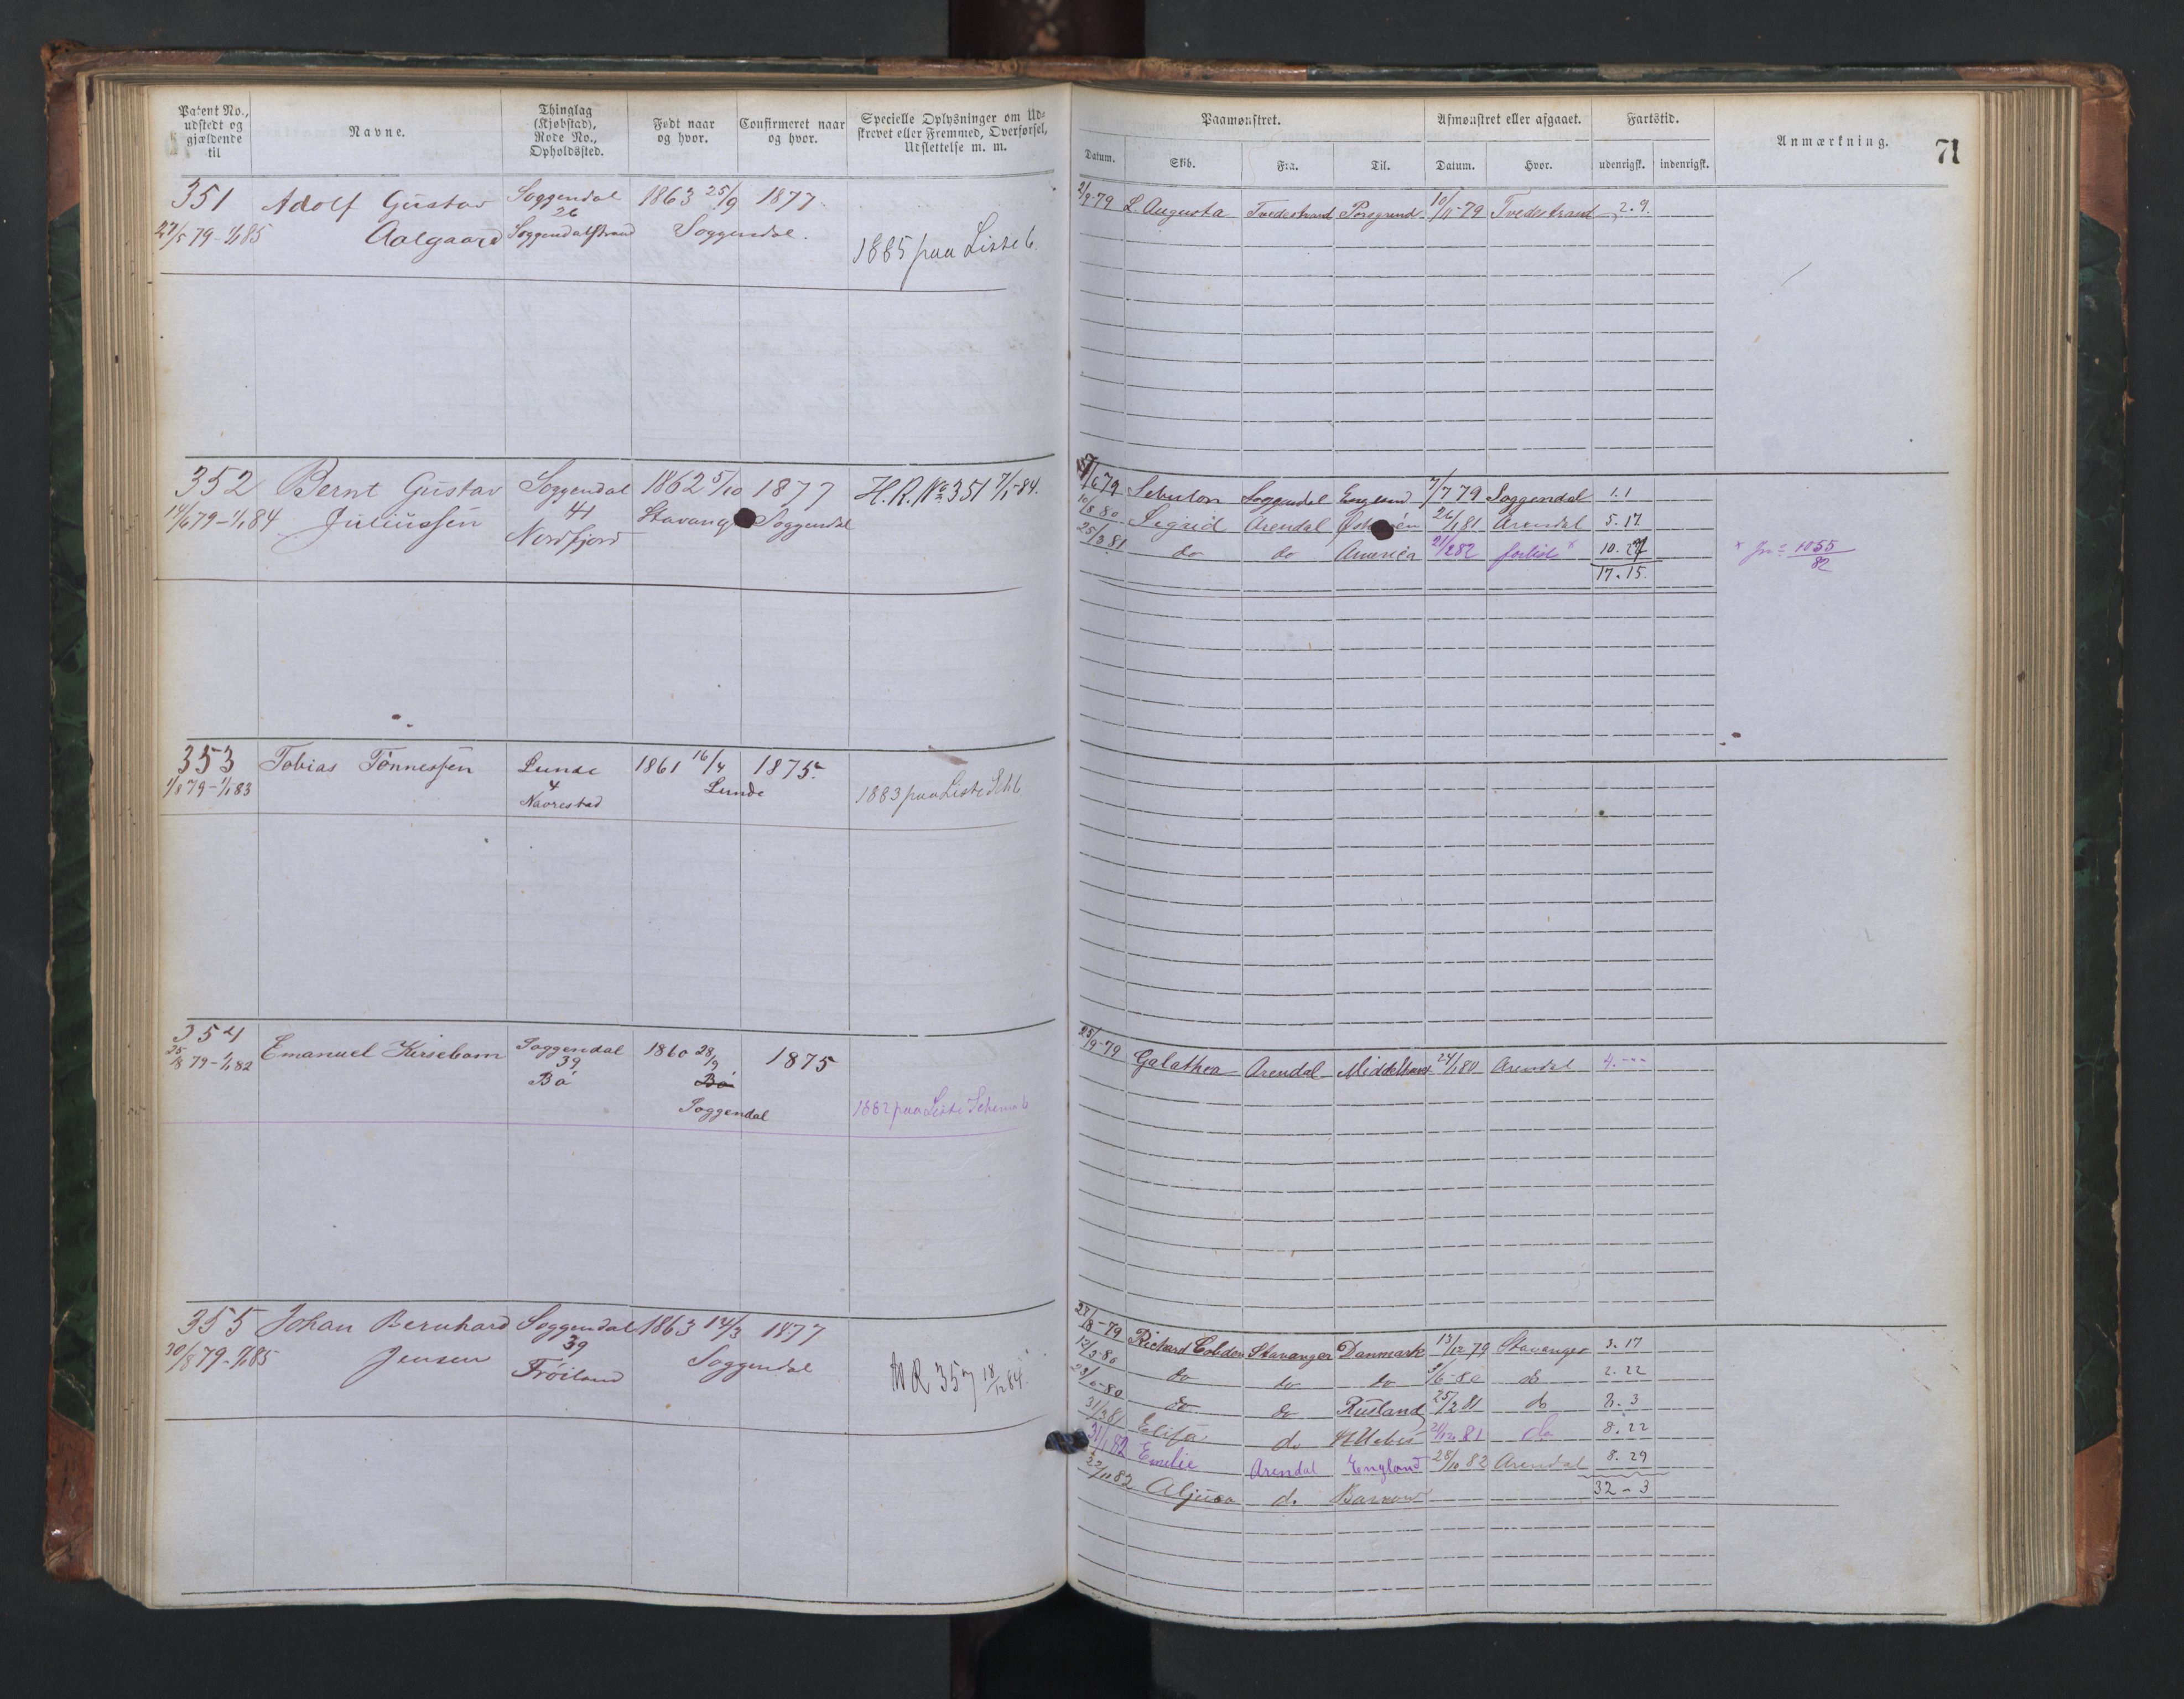 Patent No., udstedt og gjældende til
Navne.
Thinglag (Kjøbstad), Rode No., Opholdssted.
Født naar og hvor.
Confirmeret naar og hvor.
Specielle Oplysninger om Udskrevet eller Fremmed, Overførsel, Udslettelse m. m.
Paamønstret.
Afmønstret eller afgaaet.
Fartstid.
Anmærkning.
71
Datum. Skib. Fra. Til. Datum. Hvor. udenrigsk. indenrigsk.
351 Adolf Gustav Soggendal 1863 25/9 1877
27/5 79 - 1/1 85 Aalgaard 26 Soggendalstrand Soggendal.
1885 paa Liste 6.
2/9-79 L. Augusta Tvedestrand Porsgrund 10/11-79 Tvedestrand 2.9.
352 Bernt Gustav Soggendal 1862 5/10 1877 H.R. No 351 7/1-84.
14/6 79 - 1/1 84 Juliussen 41 Stavang Soggendal
Nordfjord
17/6 79 Sebulon Soggendal England 7/7 79 Soggendal 1.1
10/8 80 Sigrid Arendal 26/1 81 Arendal 5.17
25/3 81 do do America 21/2 82 forlist × 10.27
17.15.
× Jn: 1055/82
353 Tobias Tønnessen Lunde 1861 16/4 1875.
1/8 79 - 1/1 83 4 Lunde
Navrestad
1883 paa Liste Sch 6
354 Emanuel Kirsebom Soggendal 1860 28/9 1875
25/8 79 - 1/1 82 39 Bø
Bø Soggendal
1882 paa Liste Schema 6
25/9-79 Galathea Arendal Middelhavet 24/1 80 Arendal 4.---
355 Johan Bernhard Soggendal 1863 14/3 1877
30/8 79 - 1/1 85 Jensen 39 Soggendal
Frøiland
HR 357 18/12 84.
27/8-79 Richard Cobden Stavanger Danmark 13/12 79 Stavanger 3.17
12/3 80 do do do 3/6-80 do 2.22
23/6-80 do do Rusland 25/2 81 do 8.3
31/3 81 Elisa do 21/12 81 do 8.22
31/1 82 Emilie Arendal England 28/10 82 Arendal 8.29
22/11 82 do Barrow 32-3